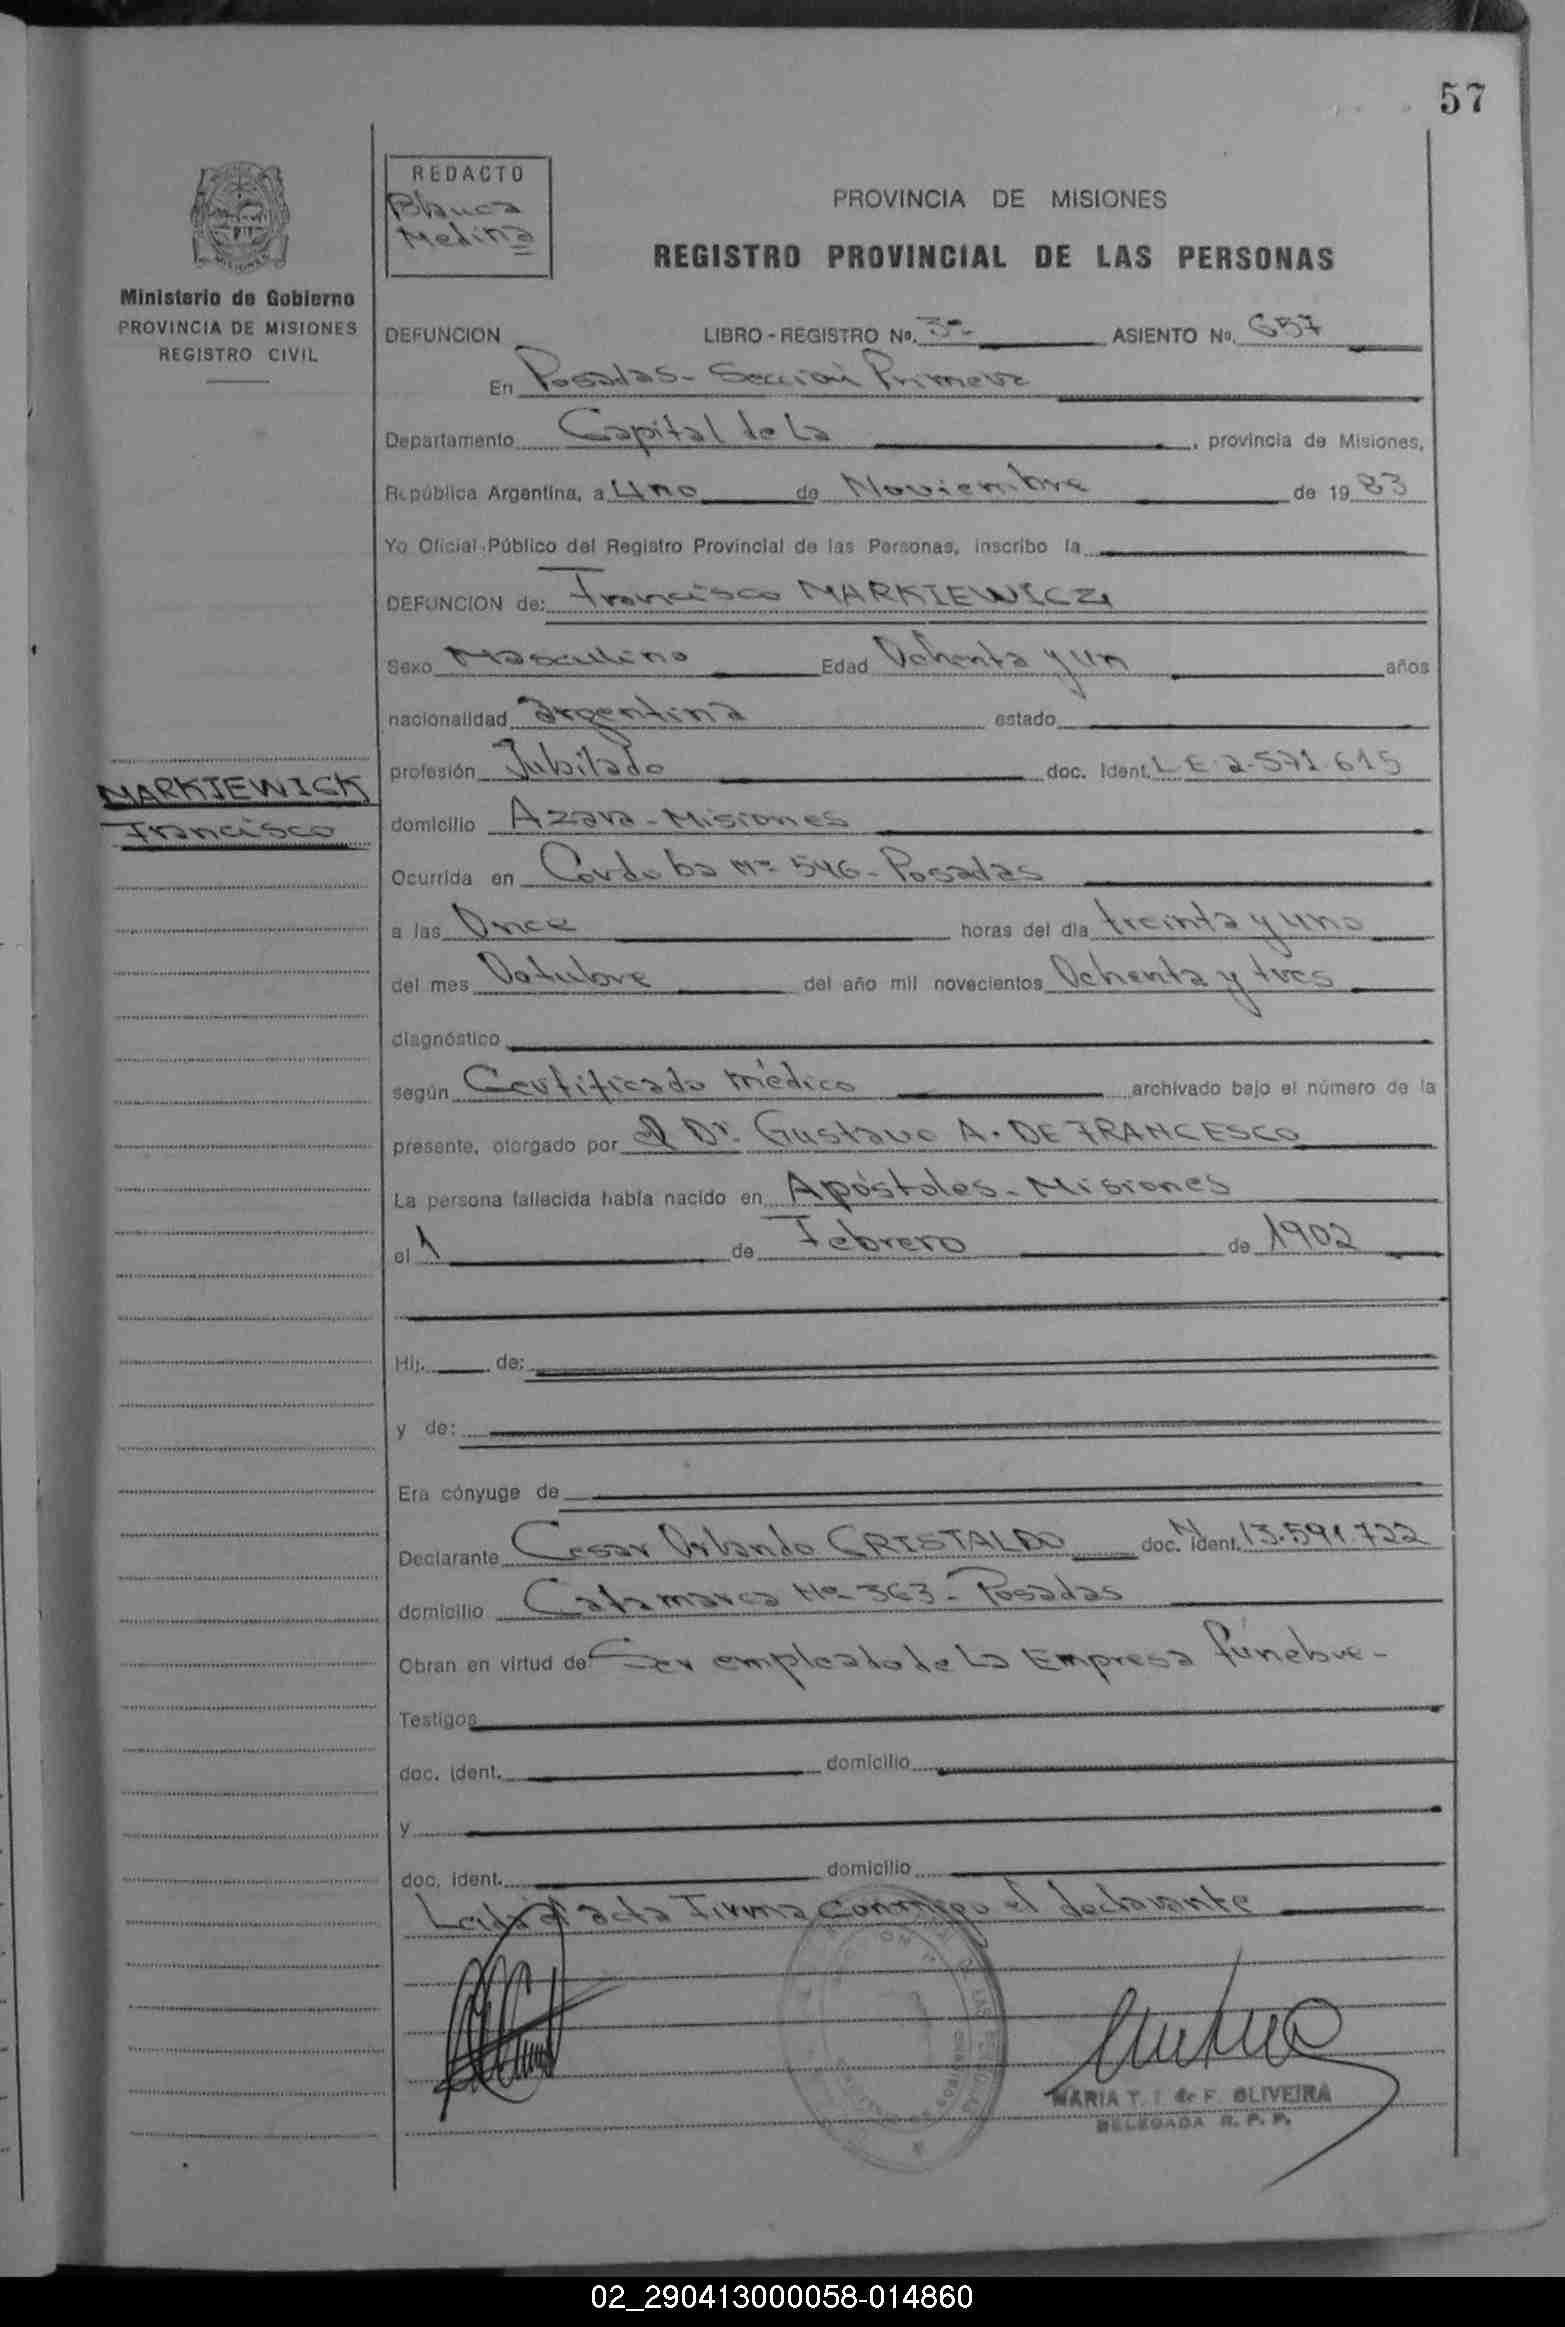 57
REDACTO
Blanca
Medina
MISIONES
Ministerio de Gobierno
PROVINCIA DE MISIONES
REGISTRO CIVIL
PROVINCIA DE MISIONES
REGISTRO PROVINCIAL DE LAS PERSONAS
DEFUNCION LIBRO - REGISTRO No. 3º ASIENTO No. 657
En Posadas - Sección Primera
Departamento Capital de La , provincia de Misiones,
República Argentina, a Uno de Noviembre de 1983
Yo Oficial Público del Registro Provincial de las Personas, inscribo la
DEFUNCION de: Francisco MARKIEWICZ
Sexo Masculino Edad Ochenta y un años
nacionalidad argentina estado
profesión Jubilado doc. Ident. L.E 2.571.615
MARKIEWICK
Francisco
domicilio Azara - Misiones
Ocurrida en Cordoba Nº 546 - Posadas
a las Once horas del día treinta y uno
del mes Octubre del año mil novecientos Ochenta y tres
diagnóstico
según Certificado médico archivado bajo el número de la
presente, otorgado por el Dr. Gustavo A. DE FRANCESCO
La persona fallecida había nacido en Apóstoles - Misiones
el 1 de Febrero de 1902
Hij. de:
y de:
Era cónyuge de
Declarante Cesar Orlando CRISTALDO doc. ident. 13.591.722
domicilio Catamarca Nº 363 - Posadas
Obran en virtud de Ser empleado de La Empresa fúnebre -
Testigos
doc. ident. domicilio
y
doc. ident. domicilio
Leida el acta Firma conmigo el declarante
MARIA T. I. de F. OLIVEIRA
DELEGADA R. P. P.
02_290413000058-014860